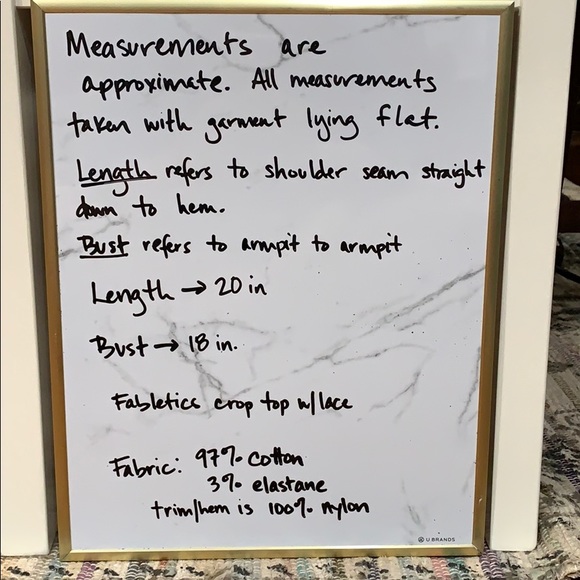 Measurements are
approximate. All measurements
taken with garment lying flat.
Length refers to shoulder seam straight
down to hem.
Bust refers to armpit to armpit
Length → 20 in
Bust → 18 in.
Fabletics crop top w/lace
Fabric: 97% cotton
3% elastane
trim/hem is 100% nylon
U BRANDS